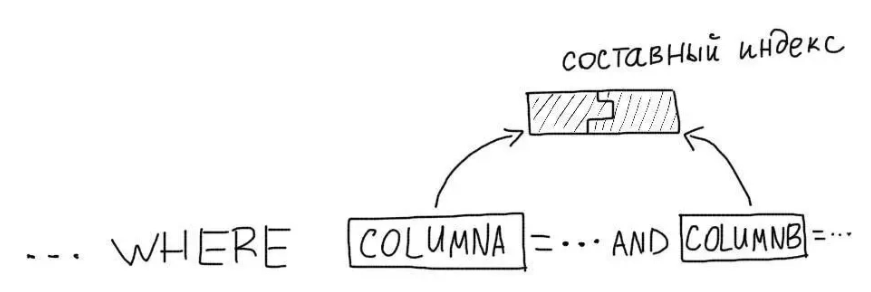 составный индекс
... WHERE COLUMNA = ... AND COLUMNB = ...